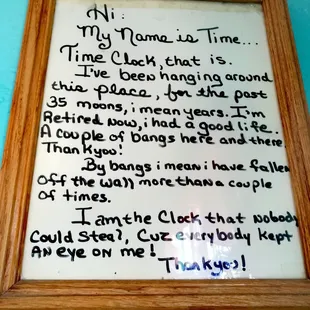 Hi:
My Name is Time...
Time Clock, that is.
I've been hanging around
this place, for the past
35 moons, i mean years. I'm
Retired Now, i had a good life..
A couple of bangs here and there
Thank you!
By bangs i mean i have fallen
off the wall more than a couple
of times.
I am the Clock that nobody
Could Steal, Cuz everybody kept
AN eye on me!
Thank you!